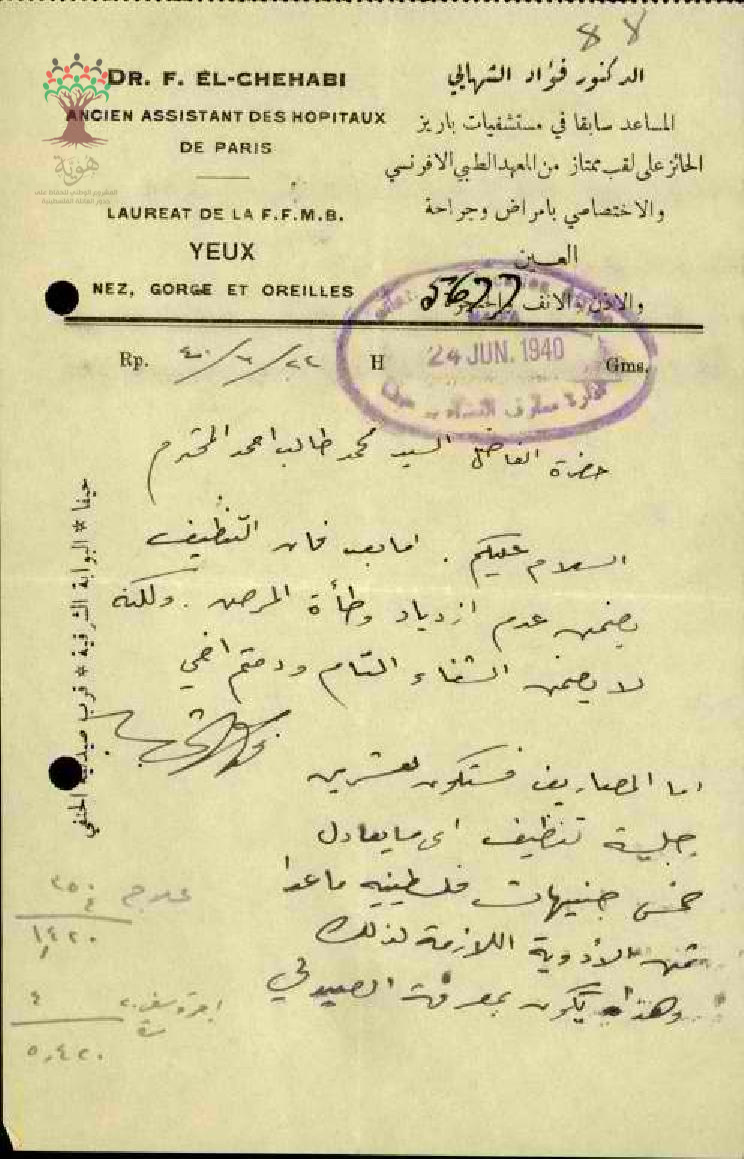 ٨٨
DR. F. EL-CHEHABI
ANCIEN ASSISTANT DES HOPITAUX
DE PARIS
LAUREAT DE LA F.F.M.B.
YEUX
NEZ, GORGE ET OREILLES
الدكتور فؤاد الشهابي
المساعد سابقا في مستشفيات باريز
الحائز على لقب ممتاز من المعهد الطبي الافرنسي
والاختصاصي بامراض وجراحة
العين
والاذن والانف
هوية
5677
24 JUN. 1940
Rp. ٢٢/٦/٤٠ H Gms.
حضرة الفاضل السيد محمد طالب احمد المحترم
السلام عليكم . اما بعد فان التنظيف
يضمن عدم ازدياد وطأة المرض . ولكنه
لا يضمن الشفاء التام ودمتم اخي
اما المصاريف فستكون لعشرين
جلسة تنظيف اي ما يعادل
خمس جنيهات فلسطينيه ما عدا
ثمن الأدوية اللازمة لذلك
وهذا يكون بمعرفة الصيدلي
حيفا * البوابة الشرقية * قرب الحنفي
علاج
١,٤٢٠
٤
٥,٤٢٠